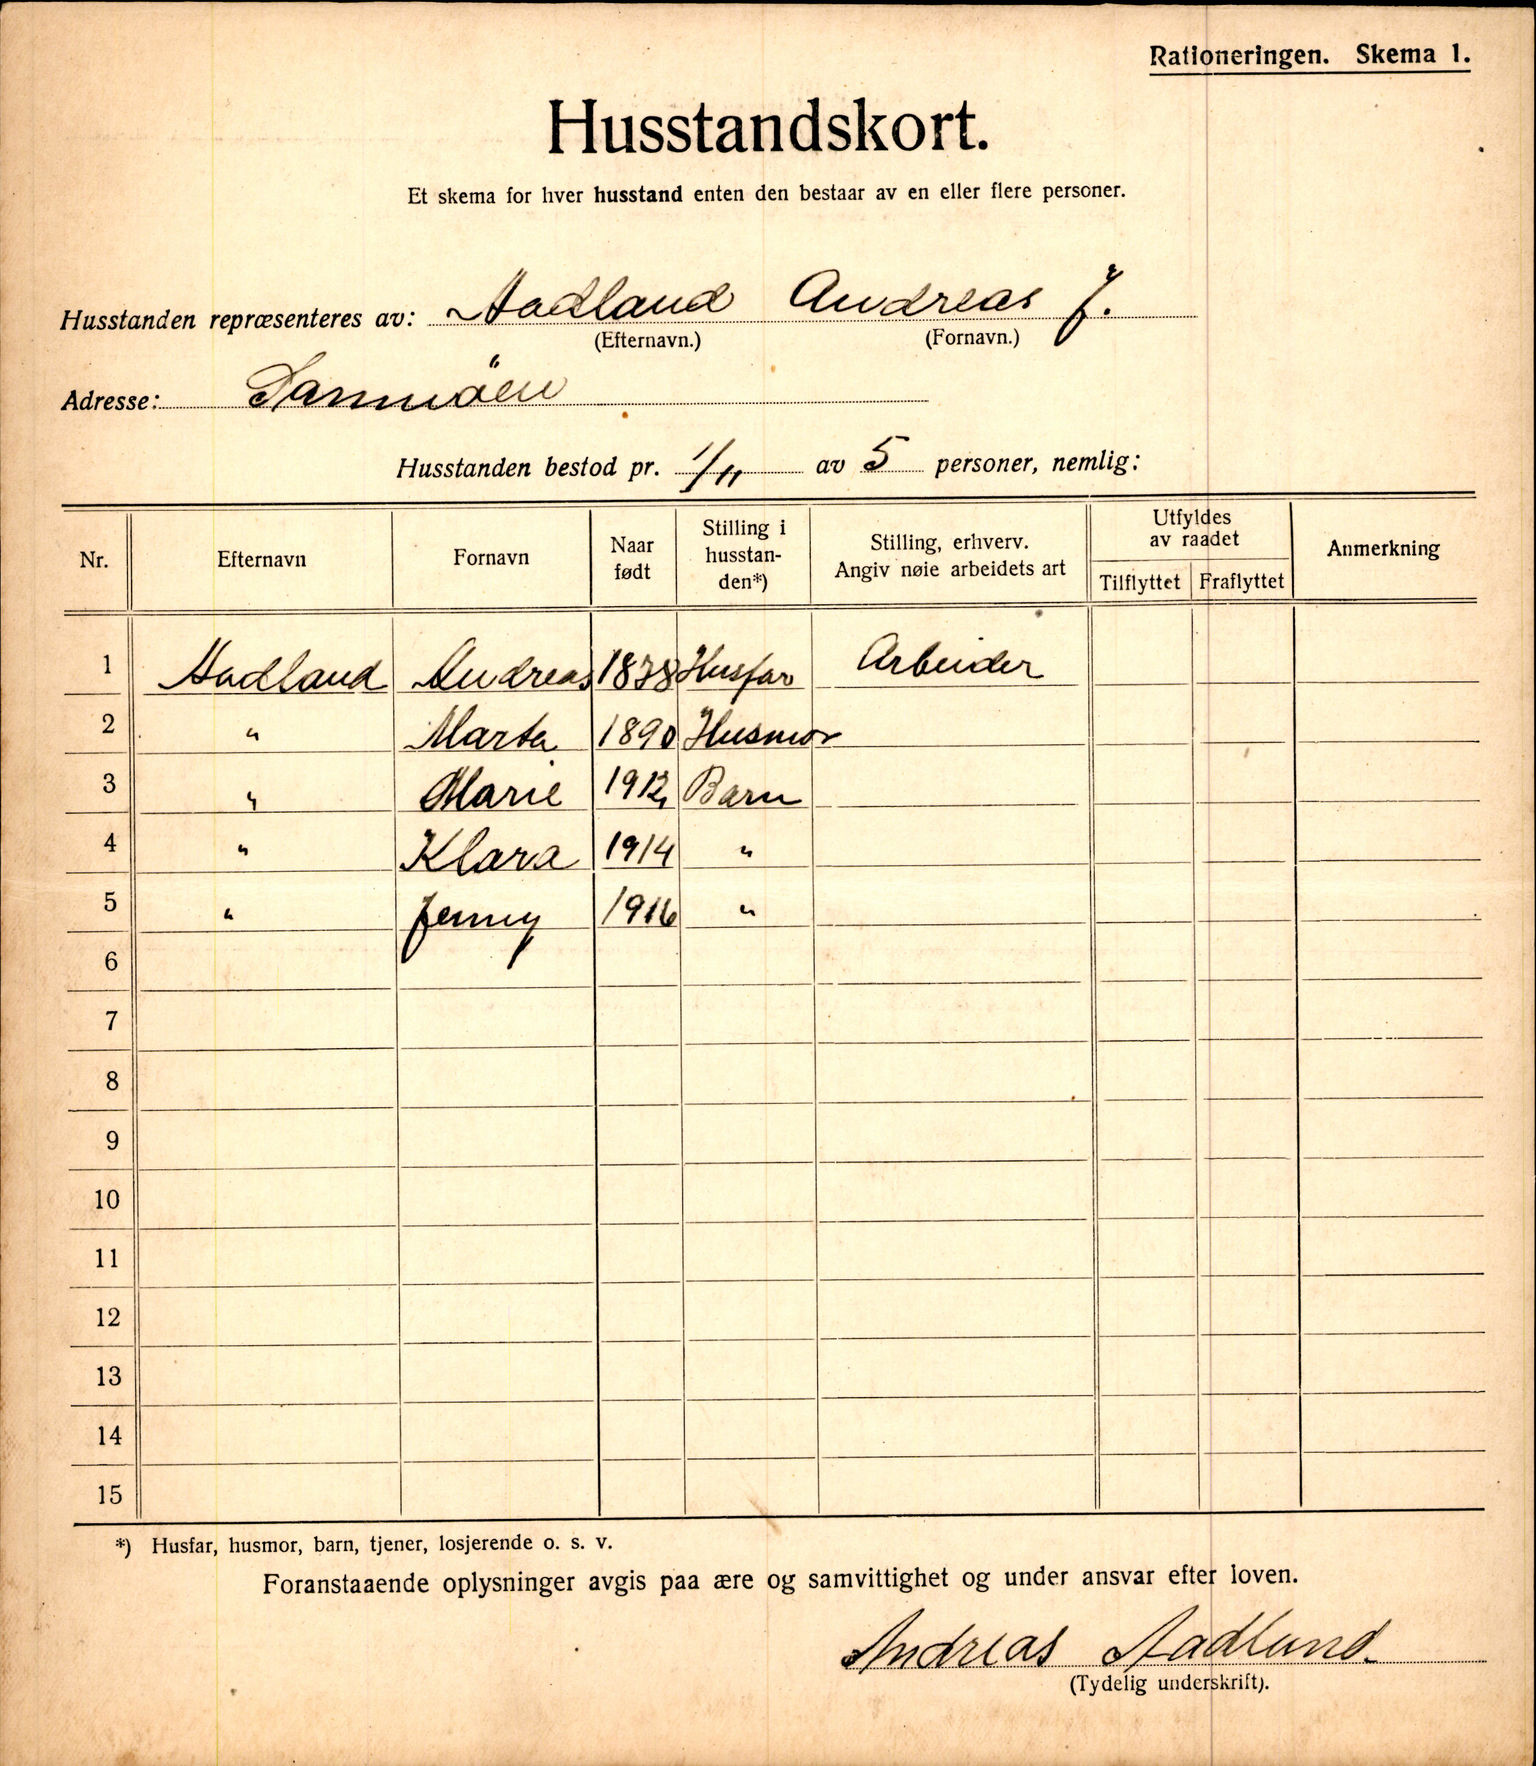 Rationeringen. Skema 1.
Husstandskort.
Et skema for hver husstand enten den bestaar av en eller flere personer.
Husstanden repræsenteres av: Aadland Andreas J.
(Efternavn.) (Fornavn.)
Adresse:
Husstanden bestod pr. 1/11 av 5 personer, nemlig:
Nr. Efternavn Fornavn Naar født Stilling i husstan-den*) Stilling, erhverv. Angiv nøie arbeidets art Utfyldes av raadet Tilflyttet Fraflyttet Anmerkning
1 Aadland Andreas Husfar Arbeider
2 " Marta 1890 Husmor
3 " Marie 1912 Barn
4 " Klara 1914 "
5 " Jenny 1916 "
6
7
8
9
10
11
12
13
14
15
*) Husfar, husmor, barn, tjener, losjerende o. s. v.
Foranstaaende oplysninger avgis paa ære og samvittighet og under ansvar efter loven.
Andreas Aadland
(Tydelig underskrift).